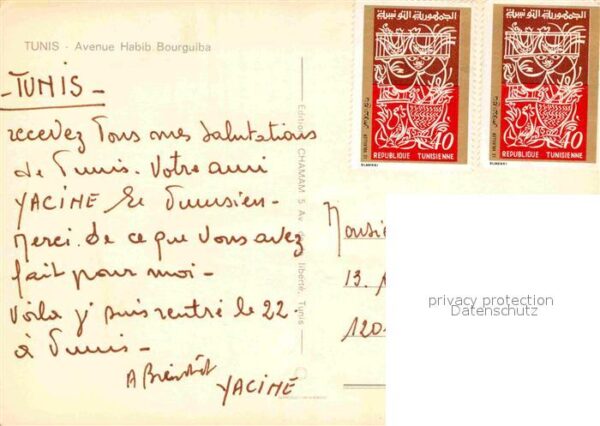 TUNIS - Avenue Habib Bourguiba
- TUNIS -
recevez Tous mes salutations
de Tunis. Votre ami
YACINE le Tunisien -
Merci de ce que vous avez
fait pour moi -
Voila j'suis rentré le 22
à Tunis -
A Bientôt
YACINE
Editions CHAMAM 5 Av. de la liberté, Tunis
الجمهورية التونسية
40
REPUBLIQUE TUNISIENNE
الجمهورية التونسية
40
REPUBLIQUE TUNISIENNE
Monsie
13.
120
privacy protection
Datenschutz